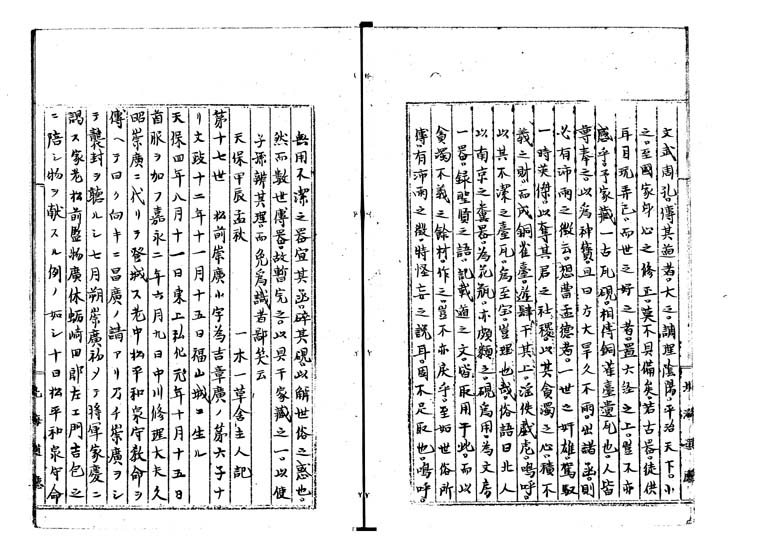 文武周孔傳其道者。大之調理陰陽。平治天下。小
之至國家身心之修正。莫不具備矣。若古器。徒供
耳目玩弄已。而世之好之者。置大經之上。豈不亦
惑乎。予家藏一古瓦硯。相傳銅雀臺遺瓦也。人皆
尊奉之以為神寶。且曰方大旱久不雨。出諸函。則
必有沛雨之徴云。想當孟德者。一世之奸雄駕馭
一時英傑。以奪其君之社稷。以其貪濁之心。積不
義之財。而成銅雀臺。遊肆于其上。淫佚戲虐。嗚呼。
以其不潔之臺瓦。為至宝。豈理也哉。俗語曰。北人
以南京之盡器。為花瓶。亦頗類之。硯為用。為文房
一器。録聖賢之語。記載道之文。皆取用于此。而以
貪濁不義之餘材。作之。豈不亦戾乎。至如世俗所
傳。有沛雨之徴。特怪妄之説耳。固不足取也。嗚呼。
無用不潔之器。宜其函。碎其硯。以解世俗之惑也。
然而數世傳器。故暫宥之。以具于家藏之一。以使
子孫辨其理。而免為識者鄙笑云
天保甲辰孟秋　一木一草舎主人記
第十七世　松前崇廣小字為吉章廣ノ第六子ナ
リ文政十二年十一月十五日福山城ニ生ル
天保四年八月十一日東上弘化元年十月十五日
首服ヲ加フ嘉永二年六月九日中川修理大夫久
昭崇廣ニ代リテ登城ス老中松平和泉守教命ヲ
傳ヘテ曰ク向キニ昌廣ノ請アリ乃チ崇廣ヲシ
テ襲封ヲ聴ルシ七月朔崇廣初メテ将軍家慶ニ
謁ス家老松前監物廣休蛎崎田郎左エ門吉包之
ニ陪シ物ヲ献スル例ノ如シ十日松平和泉守命